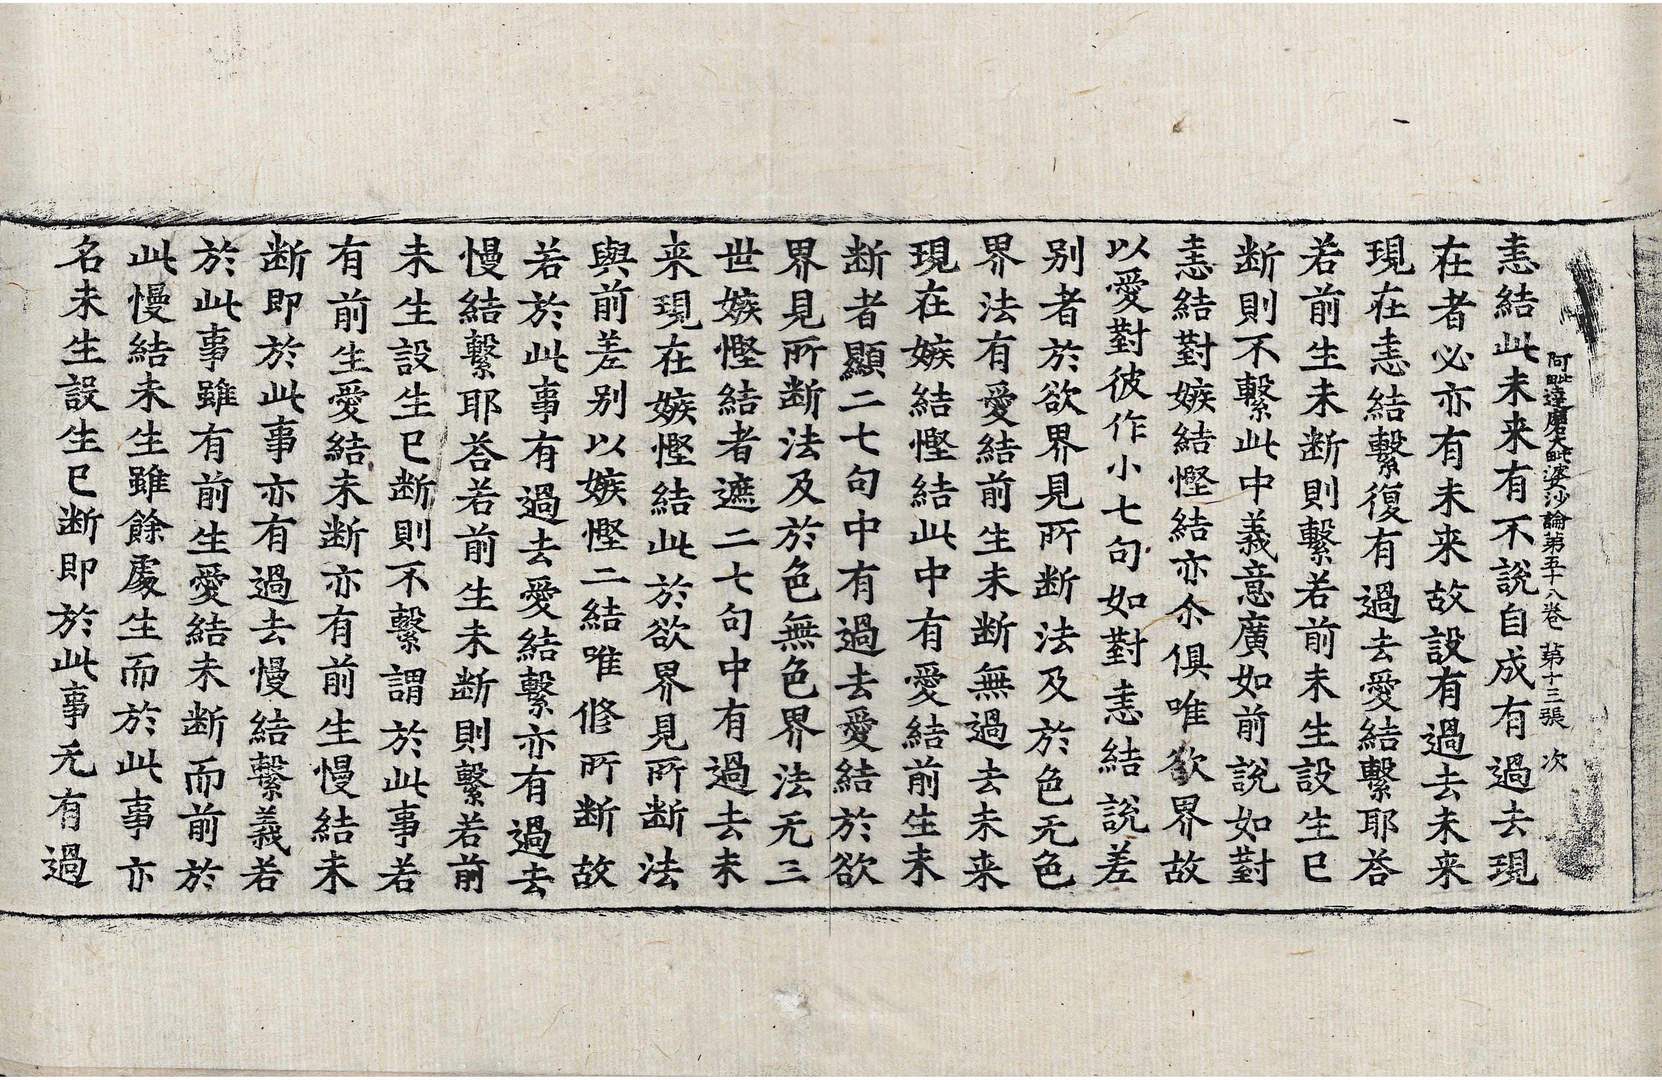 阿毗達磨大毗婆沙論第五十八卷 第十三張 次
恚結此未来有不說自成有過去現
在者必亦有未来故設有過去未来
現在恚結繫復有過去愛結繫耶荅
若前生未断則繫若前未生設生已
断則不繫此中義意廣如前說如對
恚結對嫉結慳結亦尒俱唯欲界故
以愛對彼作小七句如對恚結說差
別者於欲界見所断法及於色无色
界法有愛結前生未断無過去未来
現在嫉結慳結此中有愛結前生未
断者顯二七句中有過去愛結於欲
界見所断法及於色無色界法无三
世嫉慳結者遮二七句中有過去未
来現在嫉慳結此於欲界見所断法
與前差別以嫉慳二結唯修所断故
若於此事有過去愛結繫亦有過去
慢結繫耶荅若前生未断則繫若前
未生設生已断則不繫謂於此事若
有前生愛結未断亦有前生慢結未
断即於此事亦有過去慢結繫義若
於此事雖有前生愛結未断而前於
此慢結未生雖餘處生而於此事亦
名未生設生已断即於此事无有過